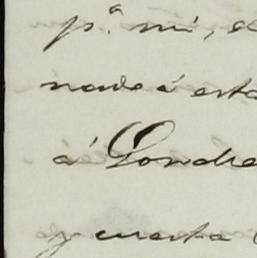 pª. mi, e
nado á esta
á Londre
y cuesta